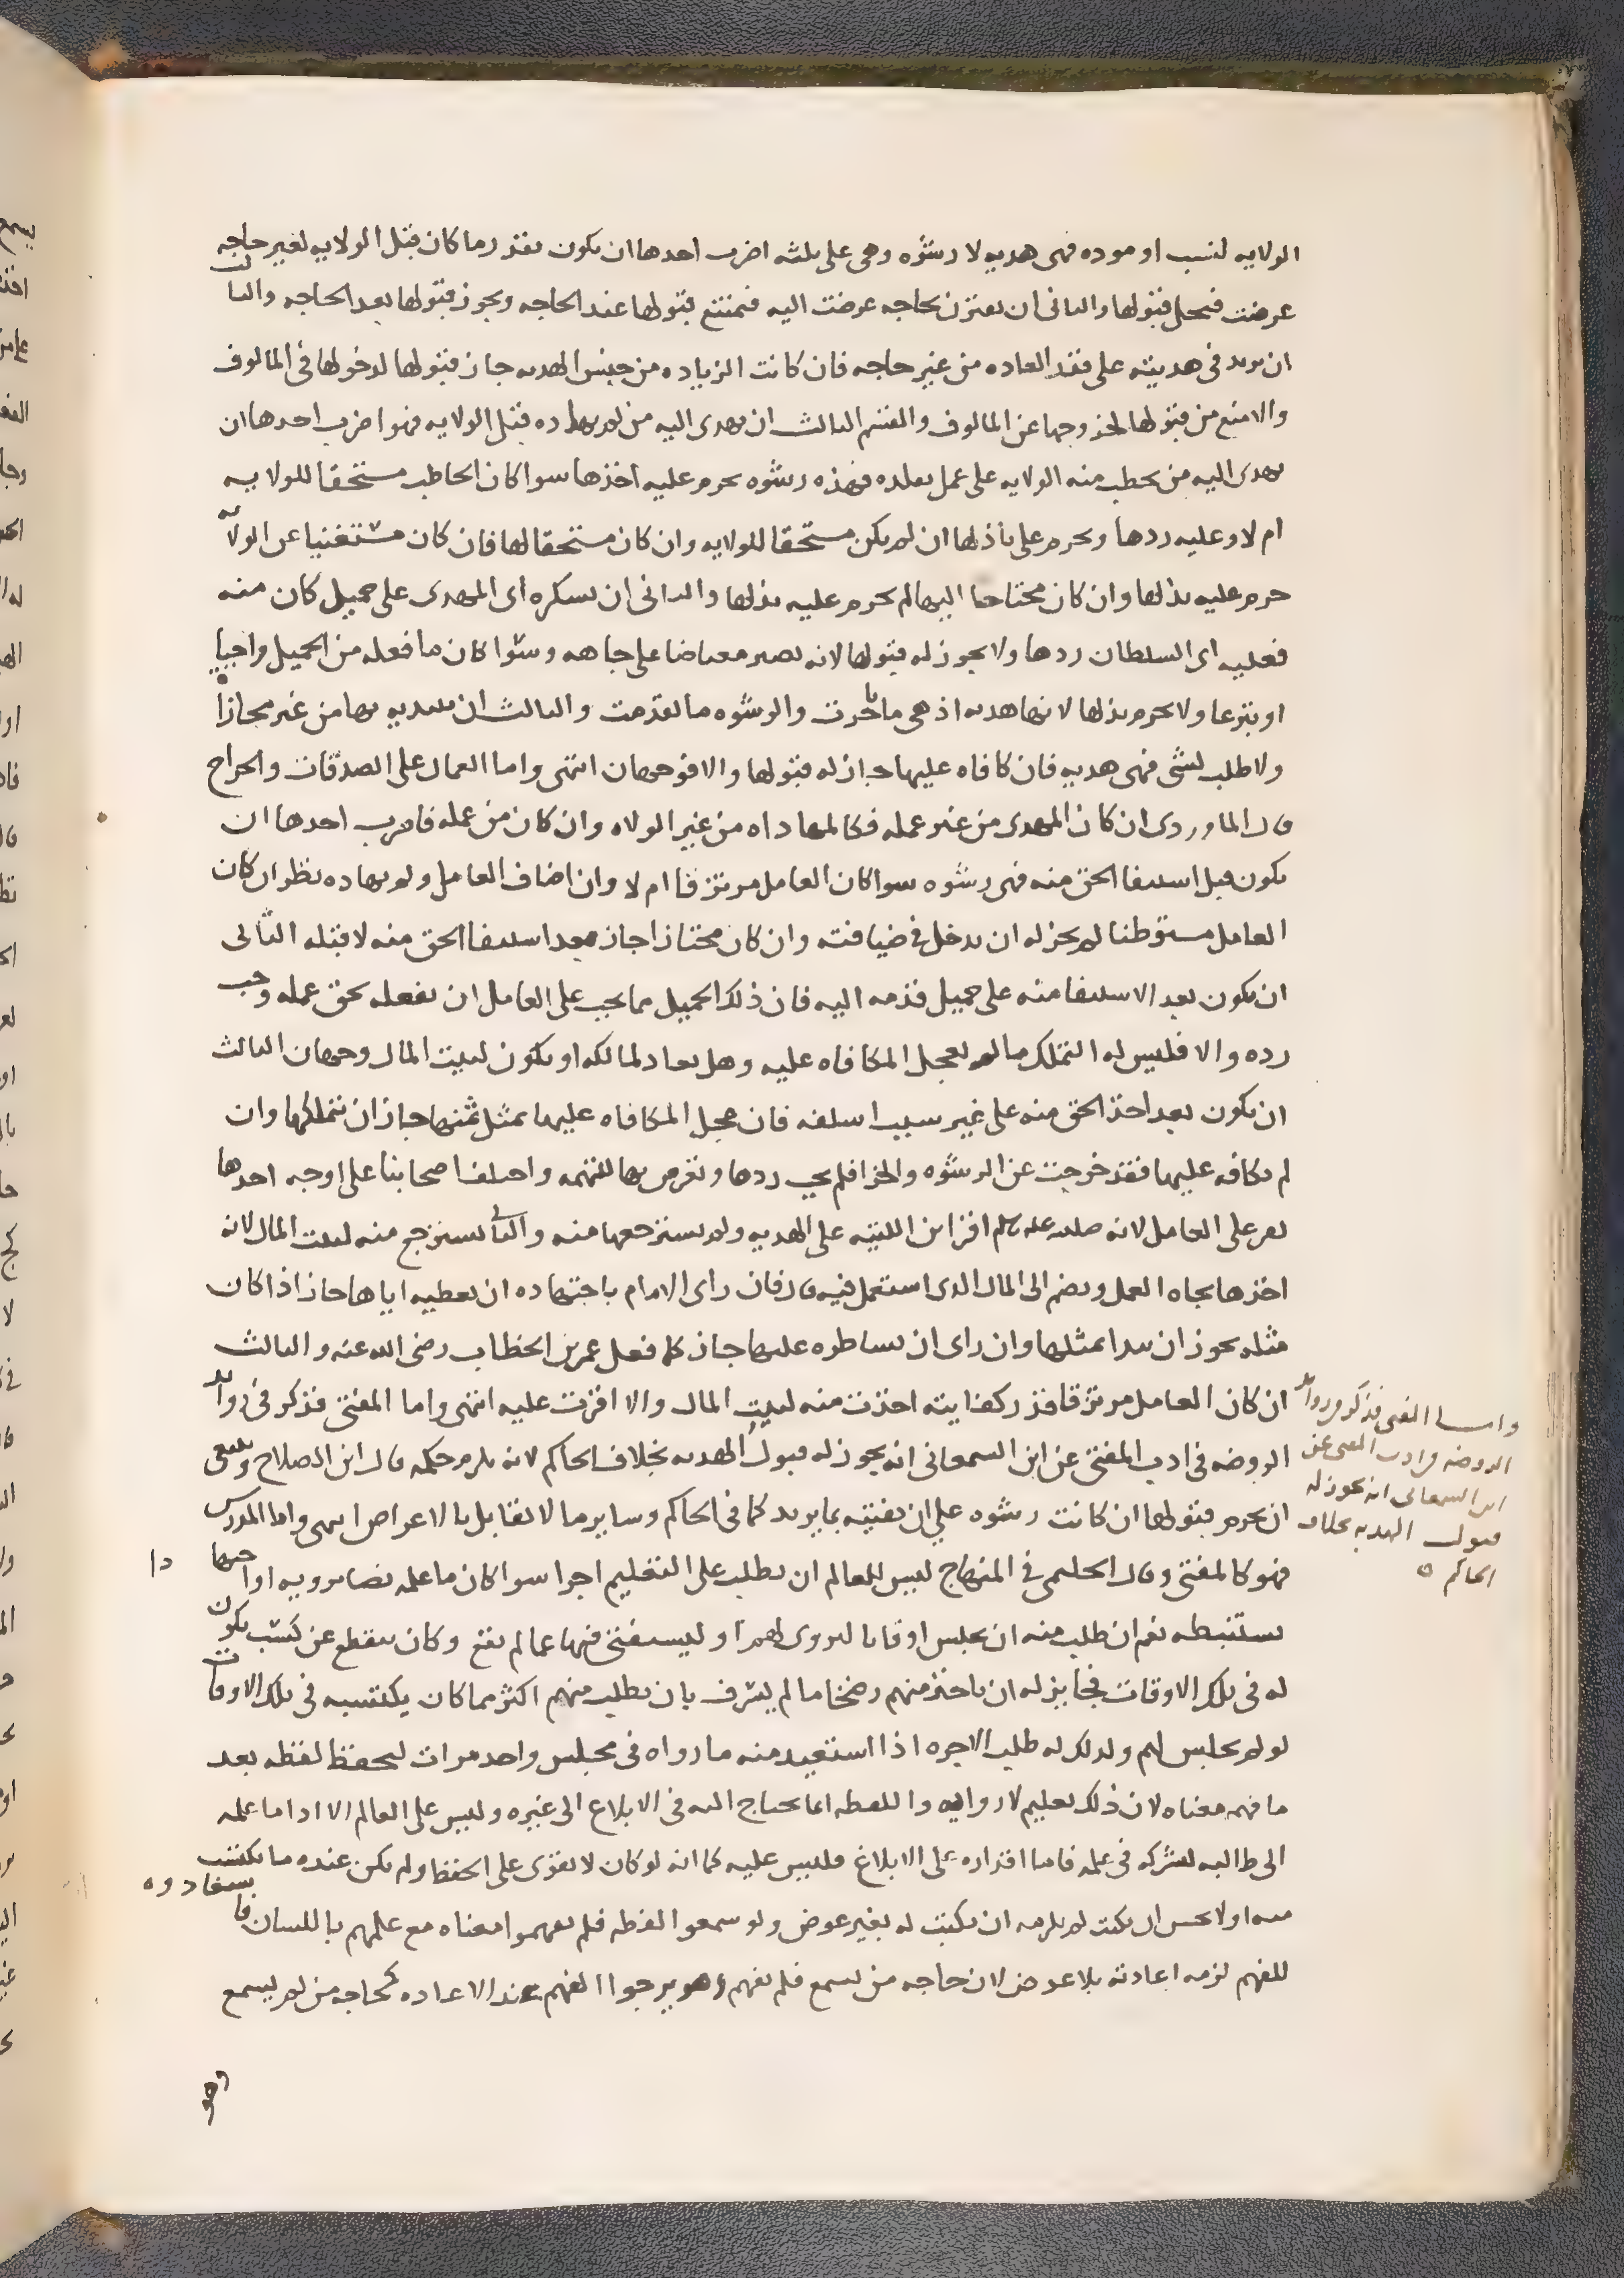 الولايه لنسب او موده فهى هديه لا رشوه وهى على ثلثه اضرب احدها ان يكون بقدر ما كان قبل الولايه لغير حاجه
عرضت فيحل قبولها والثانى ان يقترن بحاجه عرضت اليه فيمتنع قبولها عند الحاجه ويجوز قبولها بعد الحاجه والثالث
ان يزيد فى هديته على قدر العاده من غير حاجه فان كانت الزياده من جنس الهديه جاز قبولها لدخولها فى المالوف
والا منع من قبولها لخروجها عن المالوف والقسم الثالث ان يهدى اليه من لم يهاده قبل الولايه فهو اضرب احدها ان
يهدى اليه من يخطب منه الولايه على عمل يقلده فهذه رشوه يحرم عليه اخذها سوا كان الخاطب مستحقا للولايه
ام لا وعليه ردها ويحرم على باذلها ان لم يكن مستحقا للولايه وان كان مستحقا لها فان كان مستغنيا عن الولايه
حرم عليه بذلها وان كان محتاجا اليها لم يحرم عليه بذلها والثانى ان يشكره اى المهدى على جميل كان منه
فعليه اى السلطان ردها ولا يجوز له قبولها لانه يصير معتاضا على جاهه وسوا كان ما فعله من الجميل واجبا
او تبرعا ولا يحرم بذلها لانها هديه اذ هى ما تاخرت والرشوه ما تقدمت والثالث ان يبتديه بها من غير مجازاه
ولا طلب لشى فهى هديه فان كافاه عليها جاز له قبولها والا فوجهان انتهى واما العمال على الصدقات والخراج
قال الماوردى ان كان المهدى من غير عمله فكالمهاداه من غير الولاه وان كان من عمله فاضرب احدها ان
يكون قبل استيفا الحق منه فهى رشوه سوا كان العامل مرتزقا ام لا وان اضاف العامل ولم يهاده نظر ان كان
العامل مستوطنا لم يجز له ان يدخل فى ضيافته وان كان مجتازا جاز بعد استيفا الحق منه لا قبله الثانى
ان يكون بعد الاستيفا منه على جميل قدمه اليه فان ذلك الجميل مما يجب على العامل ان يفعله بحق عمله وجب
رده والا فليس له التملك ما لم يعجل المكافاه عليه وهل يعاد لمالكه او يكون لبيت المال وجهان الثالث
ان يكون بعد اخذ الحق منه على غير سبب اسلفه فان عجل المكافاه عليها بمثل ثمنها جاز ان يتملكها وان
لم يكافه عليها فقد خرجت عن الرشوه والجزا فلم يجب ردها وتعرض بها للتهمه واختلف اصحابنا على اوجه احدها
يقر على العامل لانه صلى الله عليه وسلم اقر ابن اللتبيه على الهديه ولم يسترجعها منه والثانى يسترجع منه لبيت المال لانه
اخذها بجاه العمل ويضم الى المال الذى استعمل فيه قال فان راى الامام باجتهاده ان يعطيه اياها جاز اذا كان
مثله يجوز ان يبدا بمثلها وان راى ان يشاطره عليها جاز كما فعل عمر بن الخطاب رضى الله عنه والثالث
ان كان العامل مرتزقا قدر كفايته اخذت منه لبيت المال والا اقرت عليه انتهى واما المفتى فذكر فى زوايد
الروضه فى ادب المفتى عن ابن السمعانى انه يجوز له قبول الهديه بخلاف الحاكم لانه يلزم حكمه قال ابن الصلاح وينبغى
ان يحرم قبولها ان كانت رشوه على ان يفتيه بما يريد كما فى الحاكم وساير ما لا يقابل بالاعواض انتهى واما المدرس
فهو كالمفتى وقال الحليمى فى المنهاج ليس للعالم ان يطلب على التعليم اجرا سوا كان ما علمه نصا يرويه او اجتهادا
يستنبطه نعم ان طلب منه ان يجلس اوقاتا ليروى لهم او ليستفتى فيها عما لم يقع وكان ينقطع عن كسب يكون
له فى تلك الاوقات فجايز له ان ياخذ منهم رضخا ما لم يسرف بان يطلب منهم اكثر مما كان يكتسبه فى تلك الاوقات
لو لم يجلس لهم ولذلك له طلب الاجره اذا استعيد منه ما رواه فى مجلس واحد مرات ليحفظ لفظه بعد
ما فهم معناه لان ذلك تعليم لا روايه واللفظ انما يحتاج اليه فى الابلاغ الى غيره وليس على العالم الا اداما علمه
الى طالبه ليشركه فى علمه فاما اقداره على الابلاغ فليس عليه كما انه لو كان لا يقوى على الحفظ ولم يكن عنده ما يكتب
منه او لا يحسن ان يكتب لم يلزمه ان يكتب له بغير عوض ولو سمعوا لفظه فلم يفهموا معناه مع علمهم باللسان فاستعادوه
للفهم لزمه اعادته بلا عوض لان حاجه من يسمع فلم يفهم وهو يرجوا الفهم عند الاعاده كحاجه من لم يسمع
وهو
واما المفتى فذكر فى زوايد
الروضه فى ادب المفتى عن
ابن السمعانى انه يجوز له
قبول الهديه بخلاف
الحاكم ه